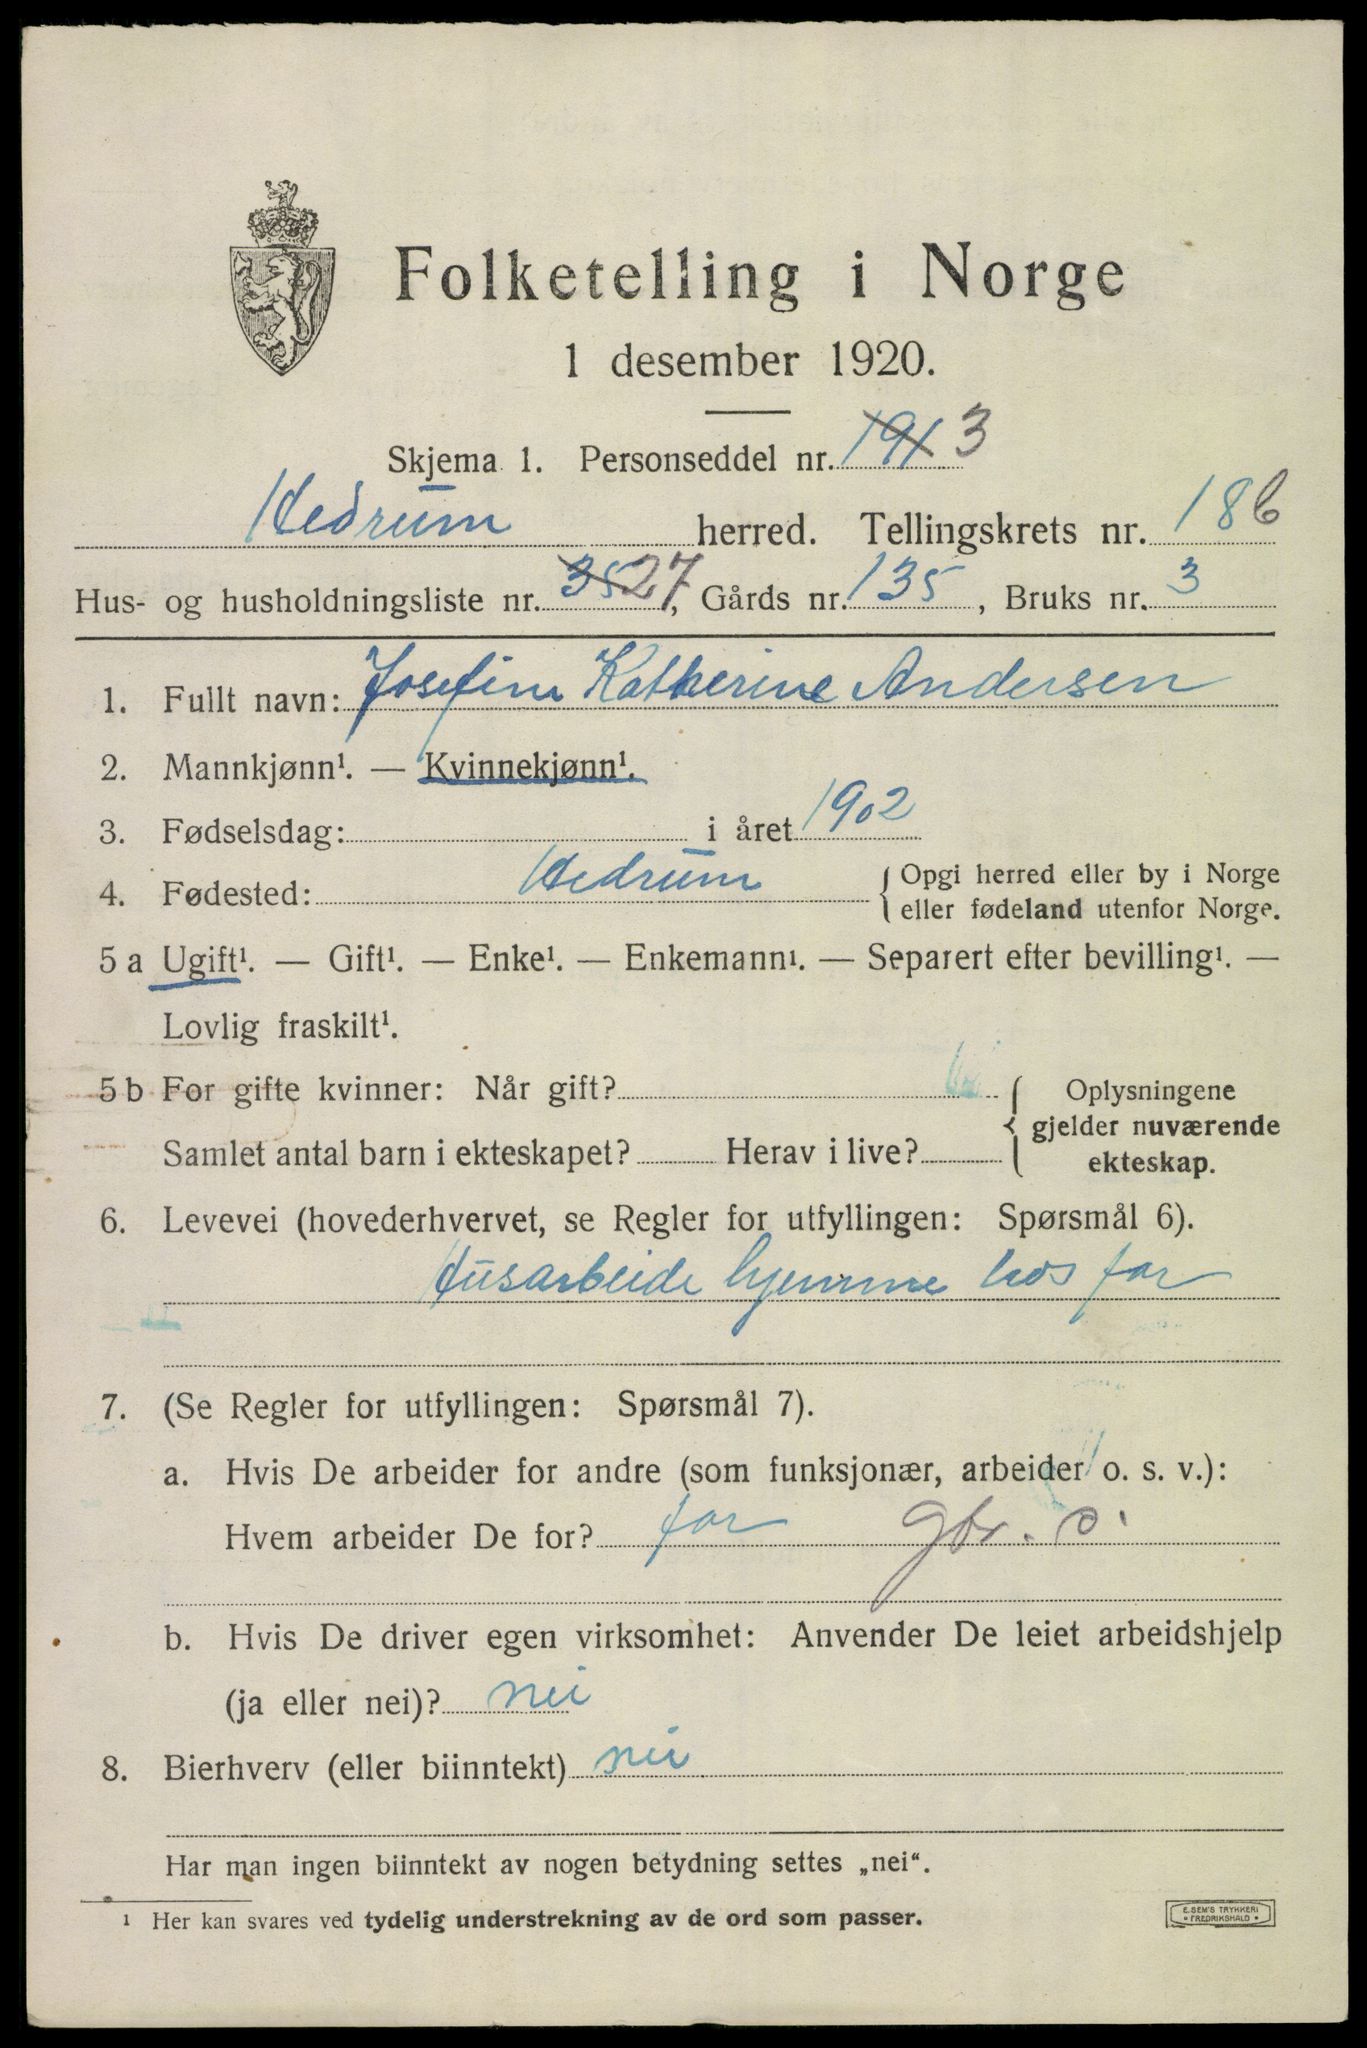 Folketelling i Norge
1 desember 1920.
Skjema 1. Personseddel nr. 191 3
Hedrum herred. Tellingskrets nr. 18 6
Hus- og husholdningsliste nr. 35 27, Gårds nr. 135, Bruks nr. 3
1. Fullt navn: Josefine Katherine Andersen
2. Mannkjønn¹. — Kvinnekjønn¹.
3. Fødselsdag: i året 1902
4. Fødested: Hedrum { Opgi herred eller by i Norge
eller fødeland utenfor Norge.
5 a Ugift¹. — Gift¹. — Enke¹. — Enkemann¹. — Separert efter bevilling¹. —
Lovlig fraskilt¹.
5 b For gifte kvinner: Når gift? { Oplysningene
gjelder nuværende
Samlet antal barn i ekteskapet? Herav i live? ekteskap.
6. Levevei (hovederhvervet, se Regler for utfyllingen: Spørsmål 6).
Husarbeide hjemme hos far
7. (Se Regler for utfyllingen: Spørsmål 7).
a. Hvis De arbeider for andre (som funksjonær, arbeider o. s. v.):
Hvem arbeider De for? far gbr.
b. Hvis De driver egen virksomhet: Anvender De leiet arbeidshjelp
(ja eller nei)? nei
8. Bierhverv (eller biinntekt) nei
Har man ingen biinntekt av nogen betydning settes „nei“.
¹ Her kan svares ved tydelig understrekning av de ord som passer.
E. SEM'S TRYKKERI
• FREDRIKSHALD •